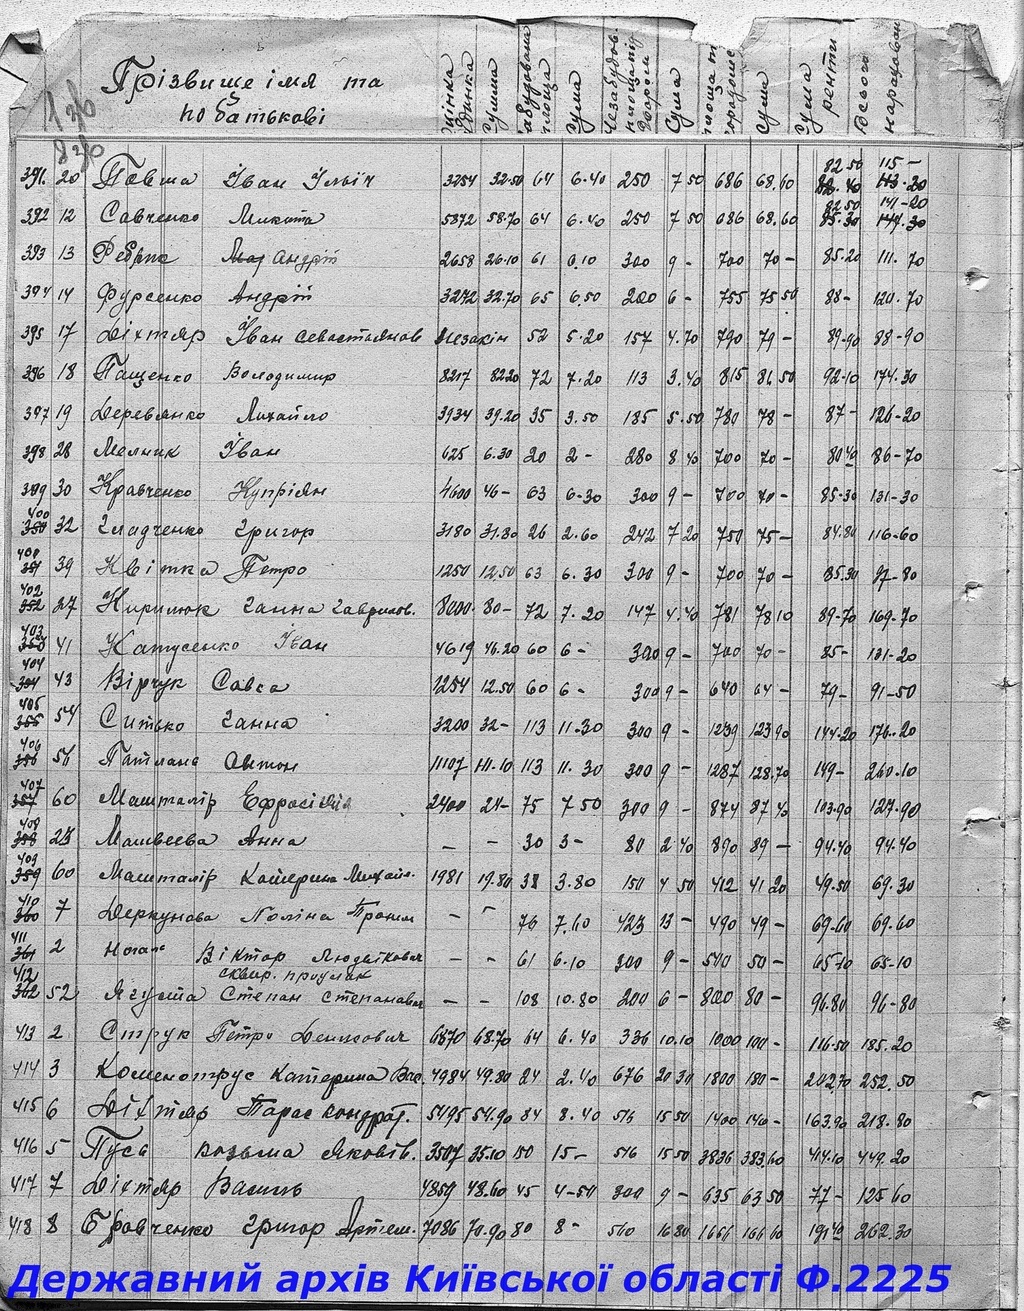 136
Прізвище імя та
по батькові
Оцінка будинка
Сумма
Забудована площа
Сума
Незабудов. площа під двором
Сума
площа п городом
Сума
Сума ренти
Всього нараховано
830
82.50 115-
391. 20 Повша Іван Ільіч 3254 32.50 64 6.40 250 7 50 686 68.60 113.20
82.50 141-20
392 12 Савченко Микита 5872 58.70 64 6.40 250 7 50 686 68.60 85.30 144.30
393 13 Андрій 2658 26.10 61 6.10 300 9- 700 70- 85.20 111.70
394 14 Фурсенко Андрій 3272 32.70 65 6.50 200 6- 755 75 50 88- 120.70
395 17 Діхтяр Іван Севастьянов Незакін 52 5.20 157 4.70 790 79- 89-90 88-90
396 18 Пащенко Володимир 8217 82 20 72 7.20 113 3.40 815 81 50 92-10 174.30
397 19 Деревянко Михайло 3934 39.20 35 3.50 185 5.50 780 78- 87- 126-20
398 28 Мелник Іван 625 6.30 20 2- 280 8 40 700 70- 80 40 86-70
399 30 Кравченко Купріян 4600 46- 63 6-30 300 9- 700 70- 85-30 131-30
400 32 Гладченко Григор 3180 31.80 26 2.60 242 7 20 750 75- 84.80 116-60
401 39 Квітка Петро 1250 12.50 63 6.30 300 9- 700 70- 85.30 97-80
402 27 Кирилюк Ганна Гаврилов. 8000 80- 72 7.20 147 4.40 781 78 10 89-70 169.70
403 41 Катусенко Іван 4619 46.20 60 6- 300 9- 700 70- 85- 131-20
404 43 Вірчук Савка 1254 12.50 60 6- 300 9- 640 64- 79- 91-50
405 54 Ситько Ганна 3200 32- 113 11.30 300 9- 1239 123 90 144-20 176.20
406 56 Патлана Антон 11107 111.10 113 11.30 300 9- 1287 128.70 149- 260.10
407 60 Машталір Ефросінія 2400 24- 75 7 50 300 9- 874 87 40 103.90 127.90
408 23 Матвеева Анна - - 30 3- 80 2 40 890 89- 94.40 94.40
409 60 Машталір Катерина Михайл. 1981 19.80 38 3.80 150 4 50 412 41 20 49.50 69.30
410 7 Деркунова Поліна - - 76 7.60 423 13- 490 49- 69.60 69.60
411 2 Віктор - - 61 6.10 300 9- 500 50- 65 10 65-10
сквир. проулак
412 52 Ягупа Степан Степанович - - 108 10.80 200 6- 800 80- 96.80 96-80
413 2 Струк Петро Денисович 6870 68.70 64 6.40 336 10.10 1000 100- 116.50 185.20
414 3 Коменотрус Катерина Вас. 4984 49.80 24 2.40 676 20 30 1800 180- 202.70 252.50
415 6 Діхтяр Тарас Кондрат. 5495 54.90 84 8.40 516 15 50 1400 140- 163.90 218.80
416 5 Пусь Козьма Яковів. 3507 35.10 150 15- 516 15 50 3836 383.60 414.10 449.20
417 7 Діхтяр Василь 4859 48.60 45 4-50 300 9- 635 63 50 77- 125 60
418 8 Бровченко Григор Артем. 7086 70.90 80 8- 560 16 80 1666 166 60 191 40 262.30
Державний архів Київської області Ф.2225